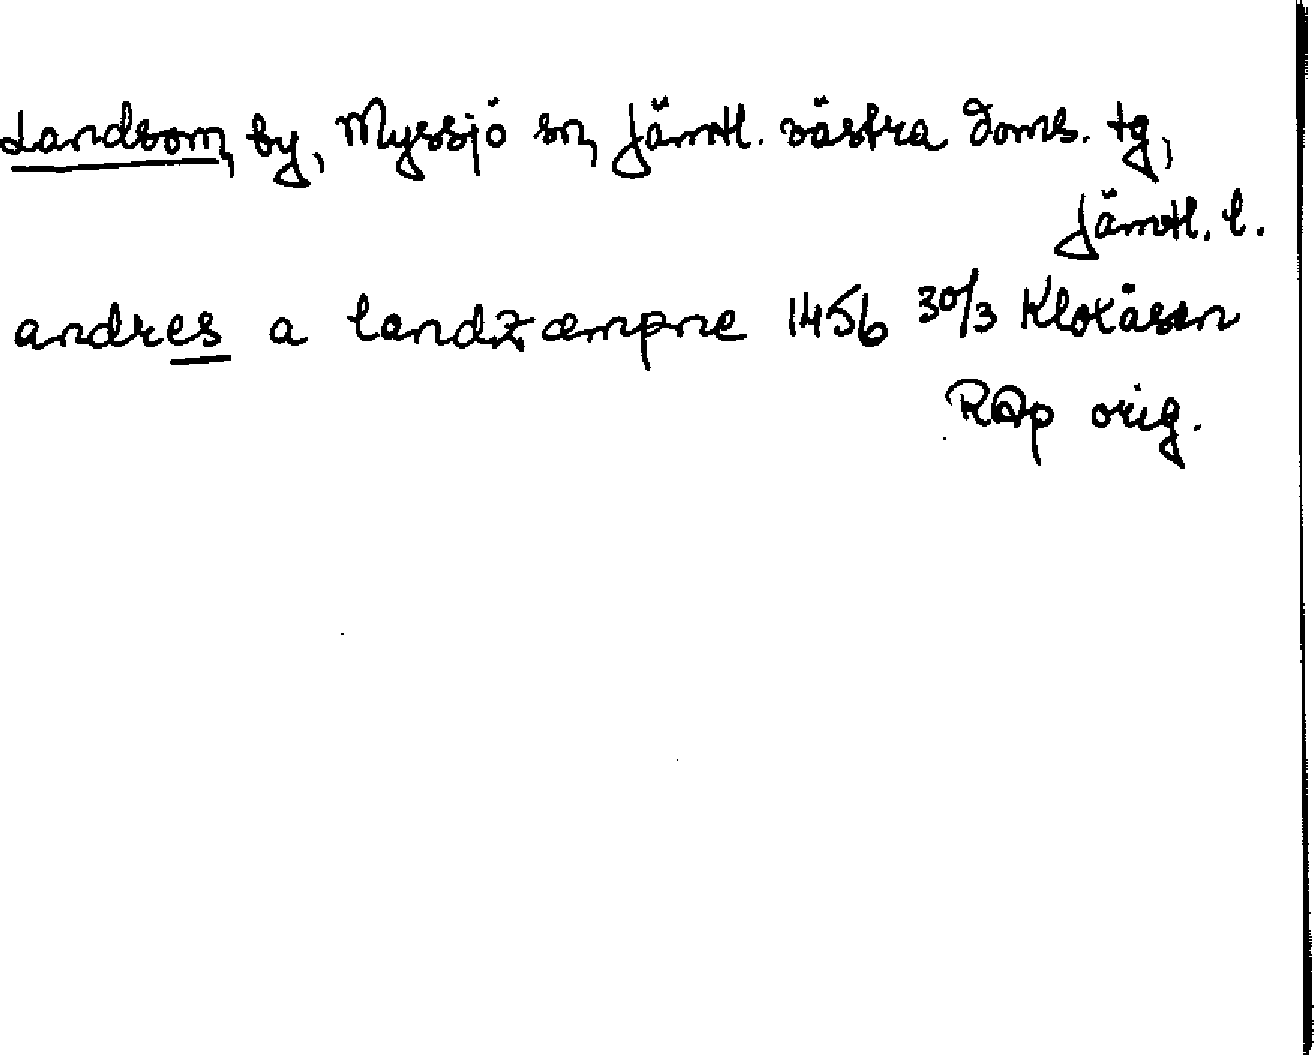 Landsom, by, Myssjö sn, Jämtl. västra doms. tg,
Jämtl. l.
andres a landzæmpne 1456 30/3 Kloxåsen
RAp orig.